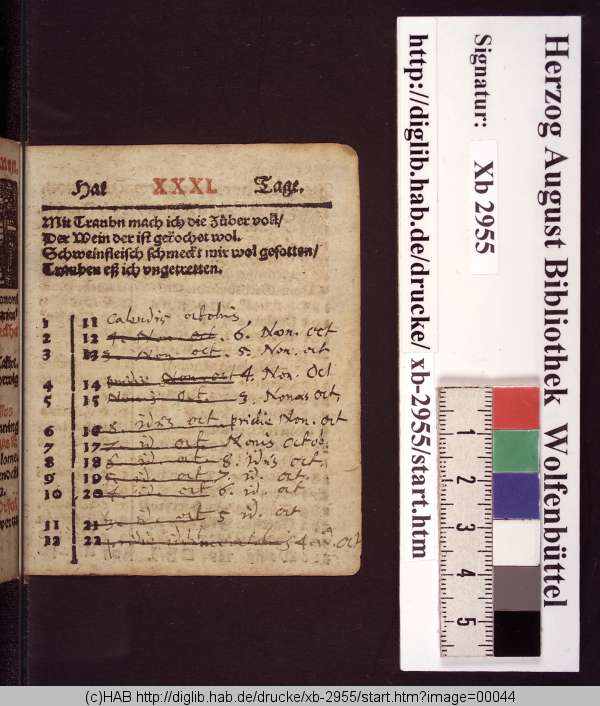 Hat XXXI. Tage.
Mit Traubn mach ich die Züber voll/
Der Wein der ist gerochet wol.
Schweinfleisch schmeckt mir wol gesotten/
Trauben eß ich vngetretten.
1 11 Calendis octobris
2 12 4. Non. oct. 6. Non. oct
3 13 3. Non. oct. 5. Non. oct
4 14 pridie Non oct 4. Non. Oct
5 15 oct. 3. Nonas oct.
6 16 8. idus oct. pridie Non. oct
7 17 7 id oct Nonis Octob.
8 18 6 id oct 8. idus oct.
9 19 5 id. oct 7. id. oct.
10 20 4 id. oct 6. id. oct
11 21 id. oct 5 id. oct
12 22 4 id. oct
Herzog August Bibliothek Wolfenbüttel
Signatur: Xb 2955
http://diglib.hab.de/drucke/ xb-2955/start.htm
1
2
3
4
5
(c)HAB http://diglib.hab.de/drucke/xb-2955/start.htm?image=00044